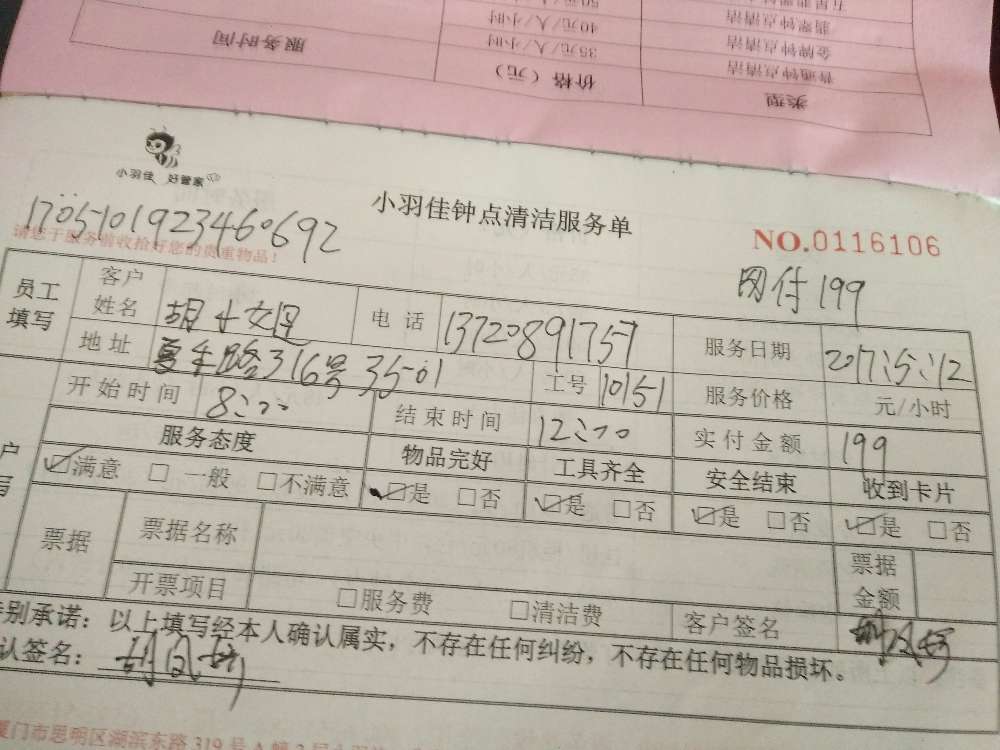 五星翡翠钟
50元/人/小时
翡翠钟点清洁
40元/人/小时
金牌钟点清洁
35元/人/小时
普通钟点清洁
类型
价格（元）
服务时间
小羽佳 好管家
小羽佳钟点清洁服务单
1705101923460692
请您于服务前收拾好您的贵重物品！
NO.0116106
网付199
员工填写
客户姓名
胡小姐
电话
13720891757
服务日期
2017:5:12
地址
路316号3501
工号
10151
服务价格
元/小时
开始时间
8:00
结束时间
12:00
实付金额
199
服务态度
物品完好
工具齐全
安全结束
收到卡片
☑满意 □一般 □不满意
☑是 □否
☑是 □否
☑是 □否
☑是 □否
票据
票据名称
票据金额
开票项目
□服务费 □清洁费
客户签名
特别承诺：以上填写经本人确认属实，不存在任何纠纷，不存在任何物品损坏。
认签名：
厦门市思明区湖滨东路319号A幢3层